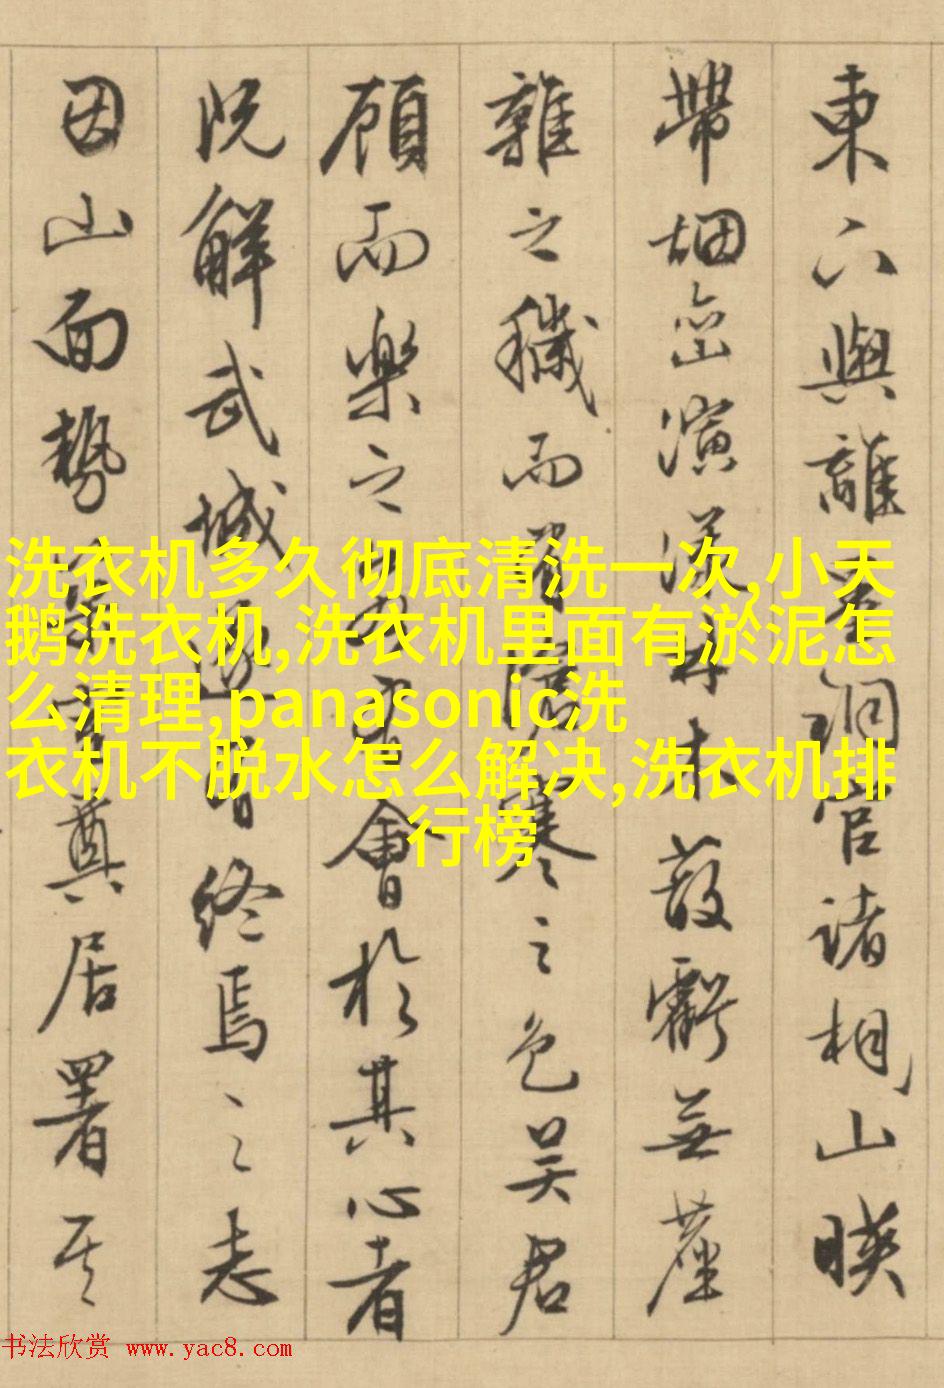 東六與離墨銅官諸相山暎
帶烟巒演漾林木蔽虧無塵
雜之穢而有清寒之色吴君
顧而樂之有會於其心者
既解武城遂有終焉之志
因山面勢奠居署其
洗衣机多久彻底清洗一次,小天
鹅洗衣机,洗衣机里面有淤泥怎
么清理,panasonic洗
衣机不脱水怎么解决,洗衣机排
行榜
书法欣赏 www.yac8.com